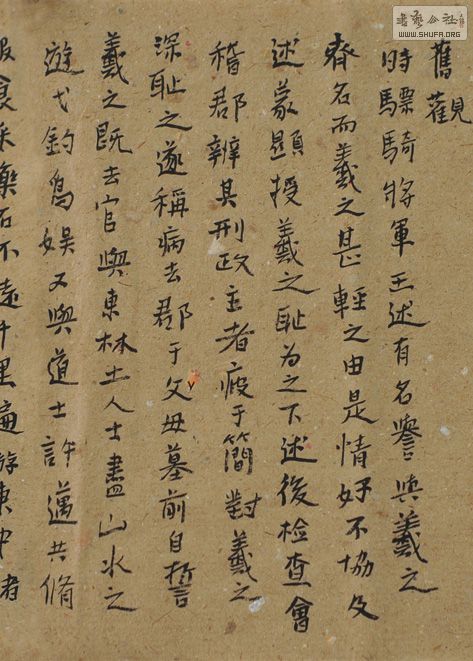 書藝公社
WWW.SHUFA.ORG
舊觀
時驃騎將軍王述有名譽與羲之
齊名而羲之甚輕之由是情好不協及
述蒙顯授羲之恥為之下述後检查會
稽郡辨其刑政主者疲于簡對羲之
深恥之遂稱病去郡于父母墓前自誓
羲之既去官與東林土人士盡山水之
遊弋釣為娛又與道士許邁共脩
服食采藥石不遠千里遍游東中諸